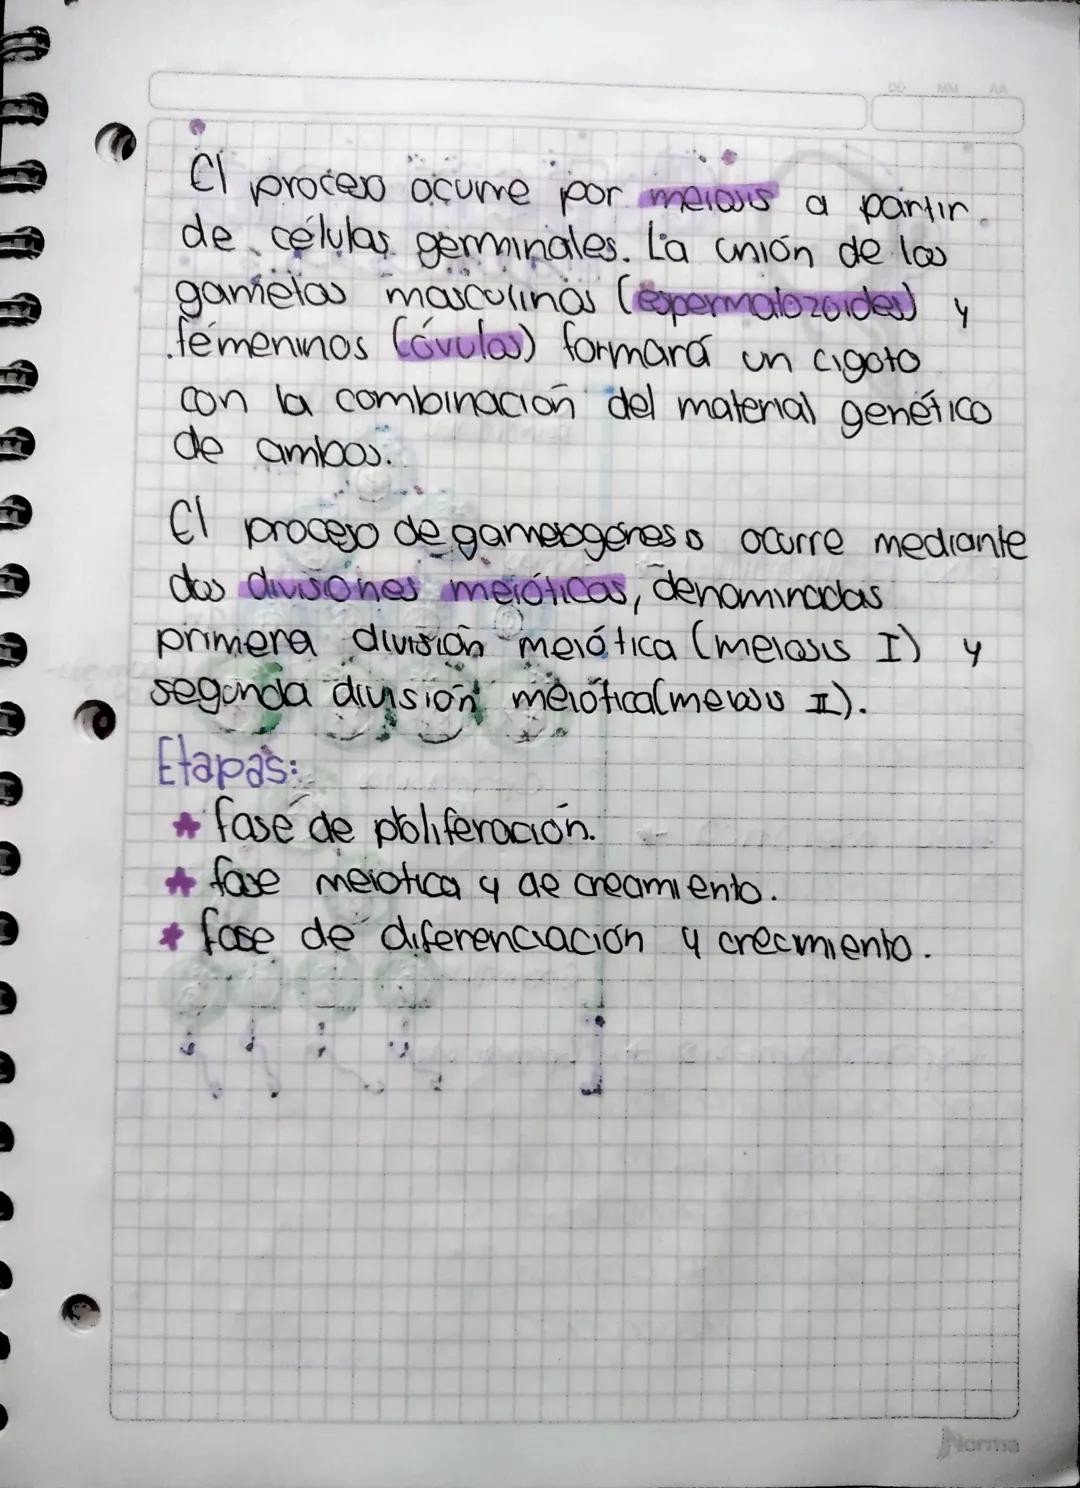 DD MM AA
El proceso ocurre por meiosis a partir
de células germinales. La unión de los
gametos masculinos (espermatozoides) y
femeninos (óvulos) formará un cigoto
con la combinación del material genético
de ambos.
El proceso de gametogénesis ocurre mediante
dos divisiones meióticas, denominadas
primera división meiótica (meiosis I) y
segunda división meiótica(meiosis II).
Etapas:
* fase de poliferación.
* fase meiotica y de creamiento.
* fase de diferenciación y crecmiento.
Norma